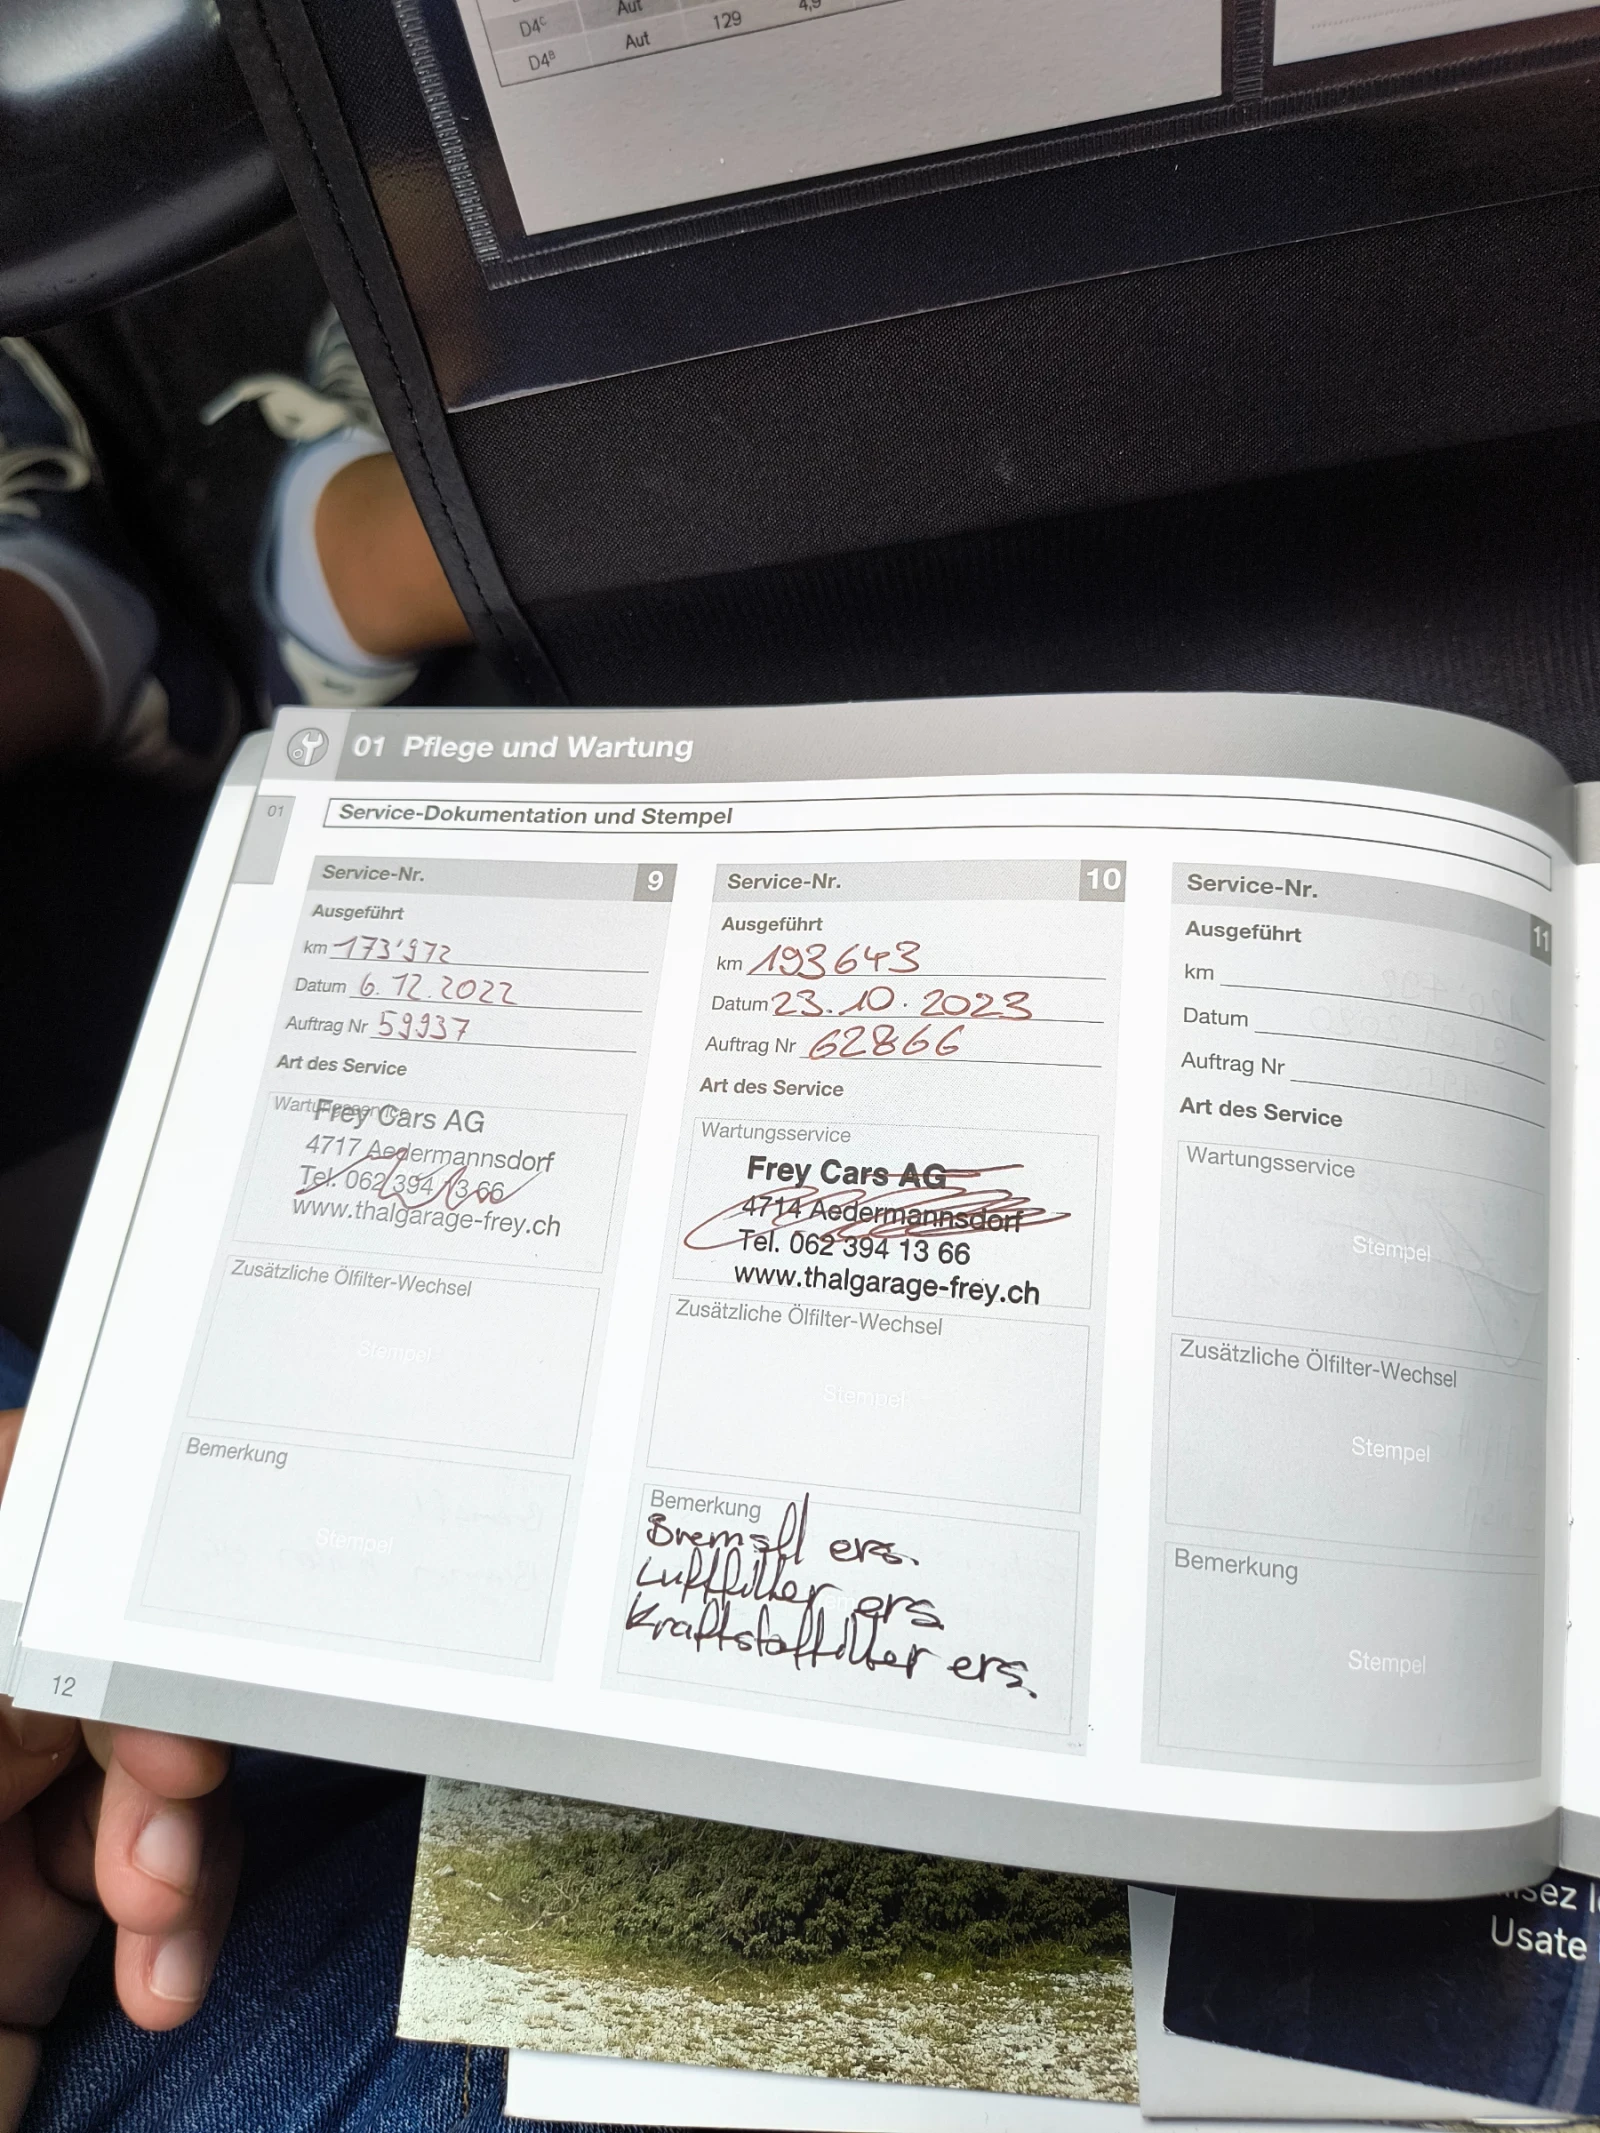 D4C Aut 129 4,9
D4B Aut
01 Pflege und Wartung
01
Service-Dokumentation und Stempel
Service-Nr. 9
Ausgeführt
km 173'972
Datum 6.12.2022
Auftrag Nr 59937
Art des Service
Wartungsservice
Frey Cars AG
4717 Aedermannsdorf
Tel. 062 394 13 66
www.thalgarage-frey.ch
Zusätzliche Ölfilter-Wechsel
Stempel
Bemerkung
Stempel
12
Service-Nr. 10
Ausgeführt
km 193643
Datum 23.10.2023
Auftrag Nr 62866
Art des Service
Wartungsservice
Frey Cars AG
4714 Aedermannsdorf
Tel. 062 394 13 66
www.thalgarage-frey.ch
Zusätzliche Ölfilter-Wechsel
Stempel
Bemerkung
Bremsfl ers.
Luftfilter ers.
Kraftstoffilter ers.
Service-Nr. 11
Ausgeführt
km
Datum
Auftrag Nr
Art des Service
Wartungsservice
Stempel
Zusätzliche Ölfilter-Wechsel
Stempel
Bemerkung
Stempel
Usate